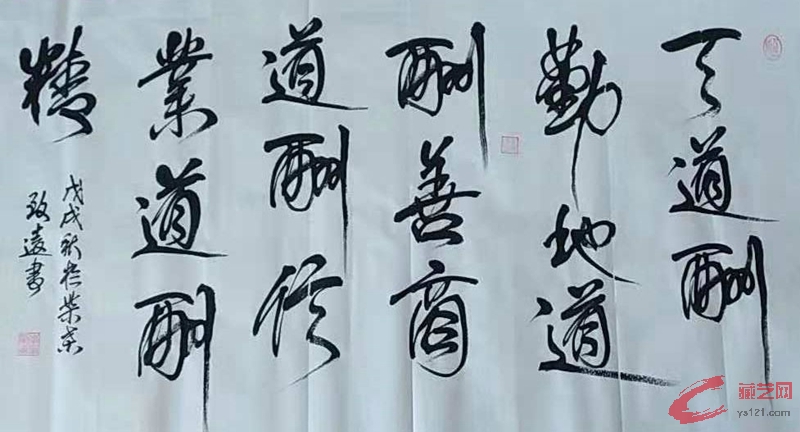 天道酬
勤地道
酬善商
道酬信
業道酬
精
戊戌秋於柴桑
致遠書
藏艺网
ys121.com